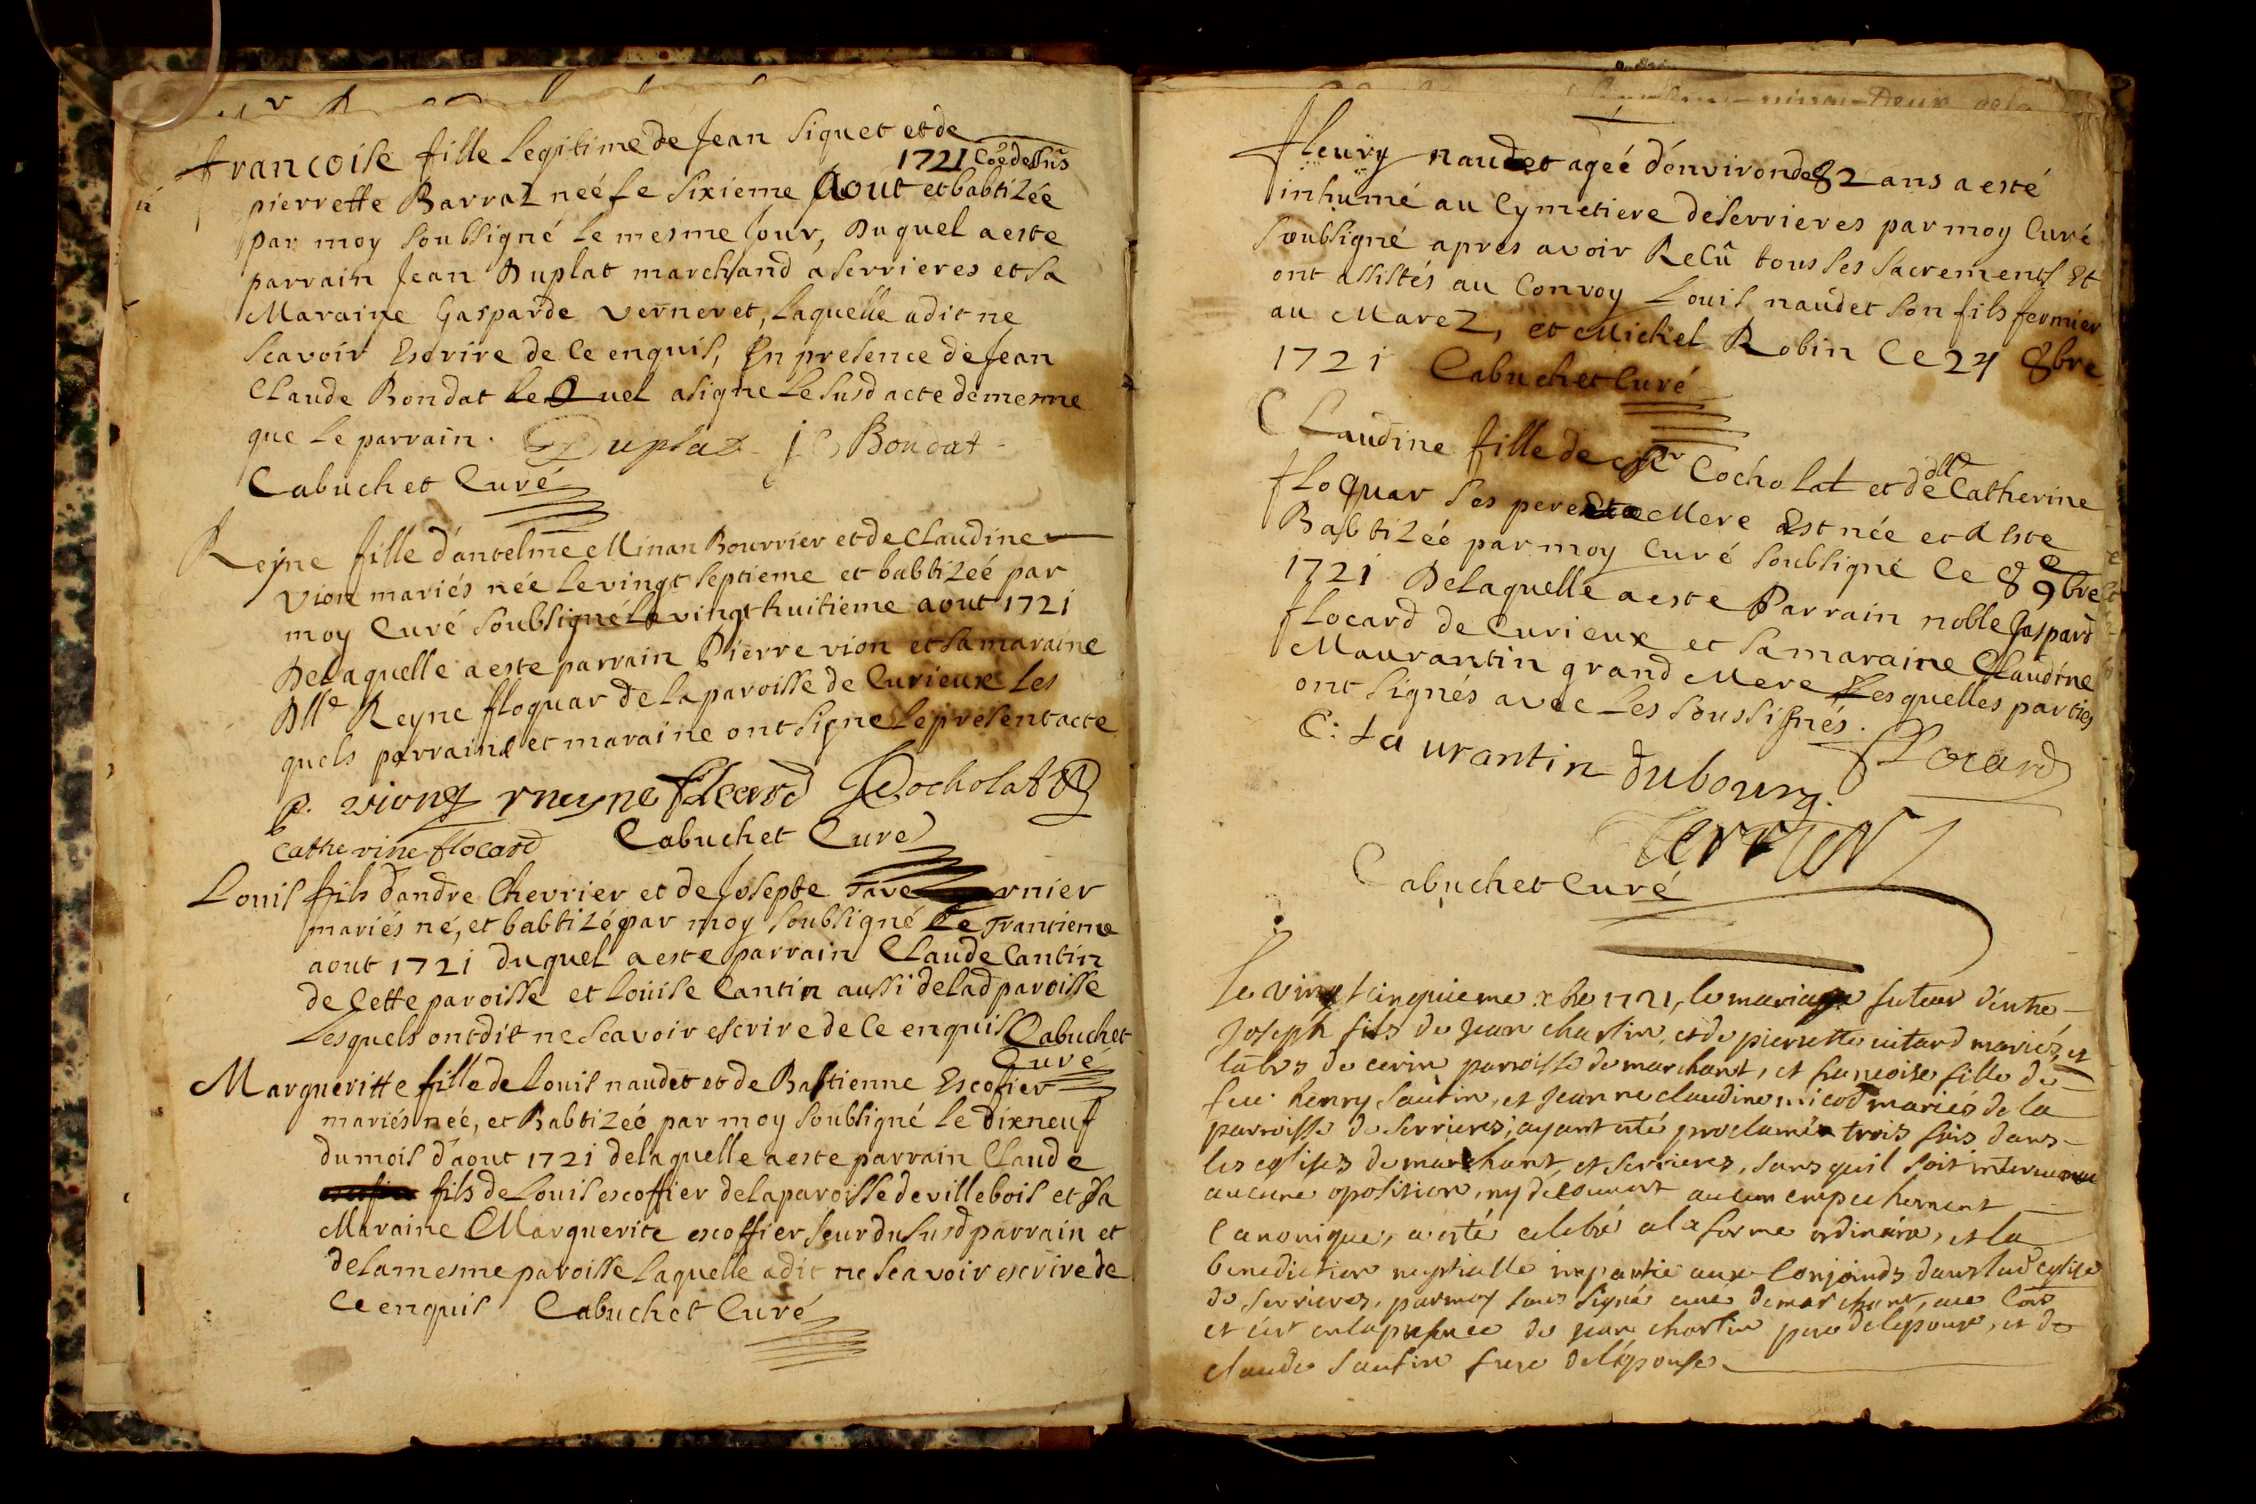 françoise fille Legitime de Jean Siquet et de
1721 Cõe dessus
pierrette Barral neé Le Sixieme Aout et babtizée
par moy soubsigné Le mesme Jour, Duquel a este
parrain Jean Duplat marchand a serrieres et sa
Maraine Gasparde verneret, Laquelle a dit ne
scavoir Escrire de ce enquis, En presence de Jean
Claude Bondat Le Quel a signe Le susd acte de mesme
que Le parrain. Duplat J C Bondat
Cabuchet Curé
Reyne fille d'antelme Minan Bourrier et de Claudine
vion mariés née Le vingt septieme et babtizeé par
moy Curé soubsigné Le vingt huitieme aout 1721
De Laquelle a este parrain Pierre vion et sa maraine
Dlle Reyne floquar de la paroisse de Curieux Les
quels parrains et maraine ont signe Le present acte
p. vion rneyne flocard Cocholat
catherine flocard Cabuchet Curé
Louis fils dandre Chevrier et de Josepte Tave rnier
mariés né, et babtizé par moy soubsigné Le Trantieme
aout 1721 duquel a este parrain Claude Cantin
de Cette paroisse et Louise Cantin aussi de lad paroisse
Lesquels ont dit ne scavoir escrire de ce enquis Cabuchet
Curé
Margueritte fille de Louis naudet et de Bastienne Escofier
mariés neé, et Babtizeé par moy soubsigné Le dixneuf
du mois d'aout 1721 de laquelle a este parrain Claude
fils de Louis escoffier de la paroisse de villebois et Sa
Maraine Marguerite escoffier seur du susd parrain et
de la mesme paroisse laquelle a dit ne scavoir escrire de
ce enquis Cabuchet Curé
fleury naudet ageé d'environ de 82 ans a esté
inhumé au Cymetiere de serrieres par moy Curé
soubsigné apres avoir Recû tous ses sacrements Et
ont assistés au Convoy Louis naudet son fils fermier
au Marez, et Michel Robin Ce 24 8bre
1721 Cabuchet Curé
CLaudine fille de Sr Cocholat et de dlle Catherine
floquar ses pere et Mere Est née et a este
Babtizeé par moy Curé soubsigné Ce 8e 9bre
1721 De laquelle a este Parrain noble Jaspard
flocard de Curieux et sa maraine Claudine
Maurantin grand Mere Lesquelles parties
ont signés avec Les soussignés.
C: Laurantin dubourg. flocard
Terrier
Cabuchet Curé
Le vingt cinquieme xbre 1721, le mariage futeur d'entre
Joseph fils de Jean charlin, et de pierrette uitard mariés, et
de cerin paroisse de marchant, et francoise fille de
feu henry sautin, et Jeanne claudine micod mariés de la
parroisse de serrieres; ayant eté proclamés trois fois dans
les eglises de marchant, et serrieres, sans quil soit intervenu
aucune oposition, ny decouvert aucun empechement
Canonique, a esté celebré a la forme ordinaire, et la
benediction nuptialle impartie aux Conjoinds dans lad eglise
de serrieres, par moy sous signé curé de marchant, 
et c'est en la presence de jean charlin pere de lepoux, et de
claude sautin frere de l'épouse